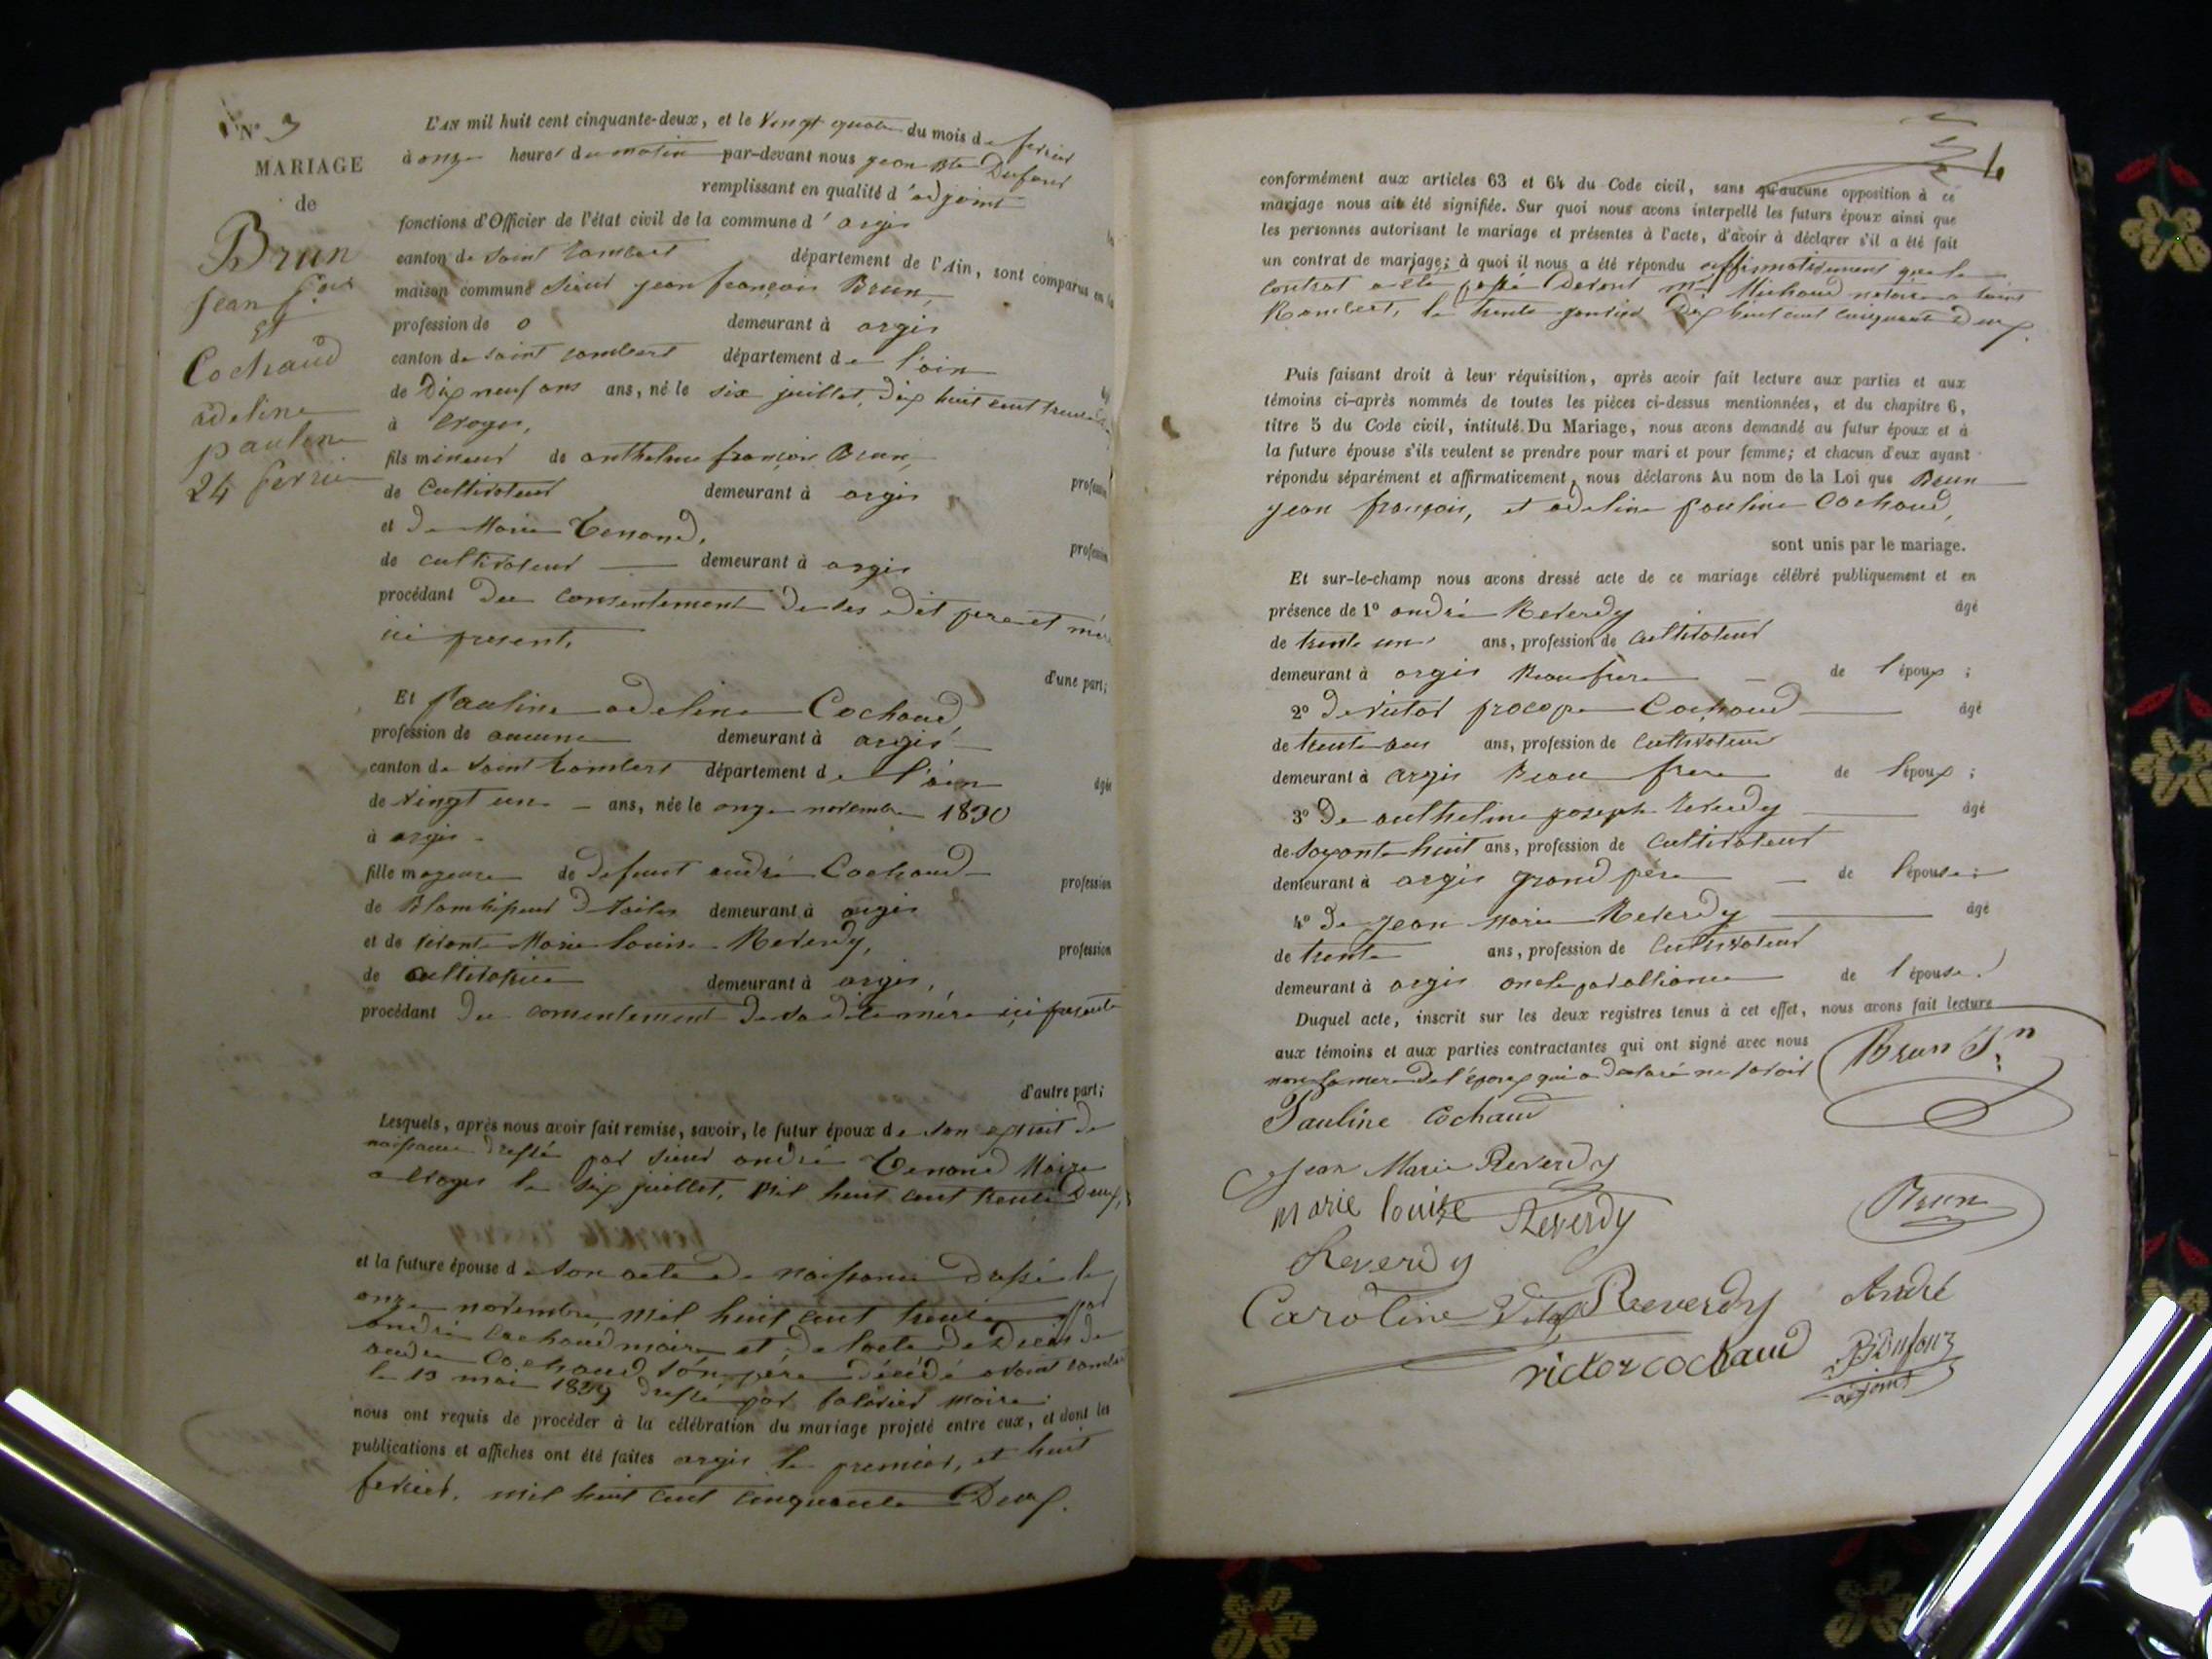 N° 3
MARIAGE
de
Brun
Jean f.çois
et
Cochaud
adeline
pauline
24 fevrier
L'AN mil huit cent cinquante-deux, et le vingt quatre du mois de fevrier
à onze heures du matin par-devant nous jean Bte Dufour
remplissant en qualité d'adjoint
fonctions d'Officier de l'état civil de la commune d'argis
canton de saint rambert département de l'Ain, sont comparus en la
maison commune sieur jean françois Brun,
profession de o demeurant à argis
canton de saint rambert département de l'ain
de Dix neuf ans ans, né le six juillet, dix huit cent trente
à
fils mineur de anthelme françois Brun, profession
de cultivateur demeurant à argis
et de Marie Tenand, profession
de cultivateur demeurant à argis
procédant du consentement de ses dit pere et mere
ici present,
d'une part;
Et pauline adeline Cochaud
profession de aucune demeurant à argis
canton de saint rambert département de l'ain âgée
de vingt une ans, née le onze novembre 1830
à argis
fille majeure de defunt andré Cochaud profession
de Blanchisseur de toiles demeurant à argis
et de vivante Marie louise Reverdy, profession
de cultivatrice demeurant à argis,
procédant du consentement de sa dite mère ici presente
d'autre part;
Lesquels, après nous avoir fait remise, savoir, le futur époux de son extrait de
naissance dressé par sieur andré Tenand Maire
a le six juillet, mil huit cent trente Deux,
et la future épouse de son acte de naissance dressé le
onze novembre mil huit cent trente par
andré Cochaud maire et de l'acte de Décès de
andré Cochaud son père décédé a saint rambert
le 19 mai 1849 dressé par maire
nous ont requis de procéder à la célébration du mariage projeté entre eux, et dont les
publications et affiches ont été faites argis le premier, et huit
fevrier, mil huit cent cinquante Deux.
conformément aux articles 63 et 64 du Code civil, sans qu'aucune opposition à ce
mariage nous ait été signifiée. Sur quoi nous avons interpellé les futurs époux ainsi que
les personnes autorisant le mariage et présentes à l'acte, d'avoir à déclarer s'il a été fait
un contrat de mariage; à quoi il nous a été répondu affirmativement que le
contrat a été passé devant me Michaud notaire a saint
Rambert, le trente janvier Dix huit cent cinquante Deux.
Puis faisant droit à leur réquisition, après avoir fait lecture aux parties et aux
témoins ci-après nommés de toutes les pièces ci-dessus mentionnées, et du chapitre 6,
titre 5 du Code civil, intitulé Du Mariage, nous avons demandé au futur époux et à
la future épouse s'ils veulent se prendre pour mari et pour femme; et chacun d'eux ayant
répondu séparément et affirmativement, nous déclarons Au nom de la Loi que Brun
jean françois, et adeline pauline Cochaud,
sont unis par le mariage.
Et sur-le-champ nous avons dressé acte de ce mariage célébré publiquement et en
présence de 1° andré Reverdy âgé
de trente un ans, profession de cultivateur
demeurant à argis Beaufrere de l'époux ;
2° De victor procope Cochaud âgé
de trente ans, profession de cultivateur
demeurant à argis Beau frere de l'époux ;
3° De anthelme joseph Reverdy âgé
de soixante huit ans, profession de cultivateur
demeurant à argis grand père de l'épouse ;
4° De jean Marie Reverdy âgé
de trente ans, profession de cultivateur
demeurant à argis oncle par alliance de l'épouse.
Duquel acte, inscrit sur les deux registres tenus à cet effet, nous avons fait lecture
aux témoins et aux parties contractantes qui ont signé avec nous
non la mere de l'époux qui a declaré ne savoir
Brun J.n
Pauline Cochaud
Jean Marie Reverdy
marie louise Reverdy
Brun
Reverdy
Caroline Reverdy
André
victor cochaud
Bt Dufour
adjoint